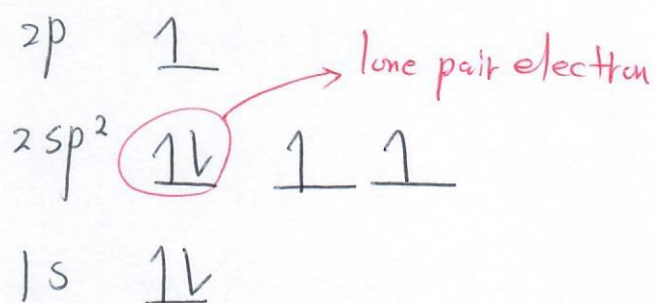 2p 1
lone pair electron
2sp² 1L 1 1
1s 1L